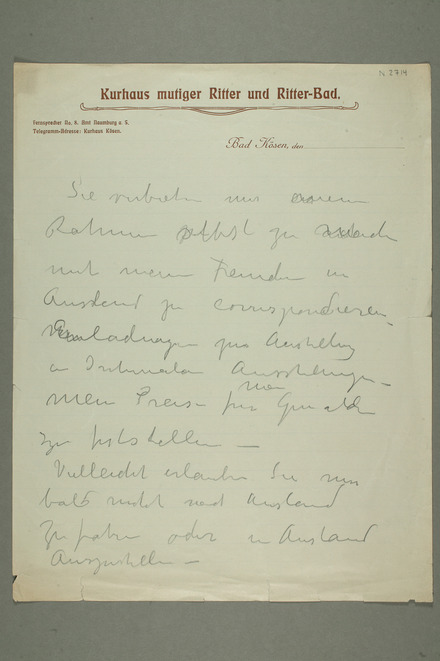 N 2714
Kurhaus mutiger Ritter und Ritter-Bad.
Fernsprecher No. 8. Amt Naumburg a. S.
Telegramm-Adresse: Kurhaus Kösen.
Bad Kösen, den
Sie verbieten mir
Rahmen selbst zu
mit meinen Freunden im
Ausland zu correspondieren
Einladungen zur Ausstellung
an Ausstellungen –
mein Preise für Gemälde
zu festzstellen –
Vielleicht erlauben Sie mir
bald nicht nach Ausland
zu fahren oder in Ausland
Auszustellen –